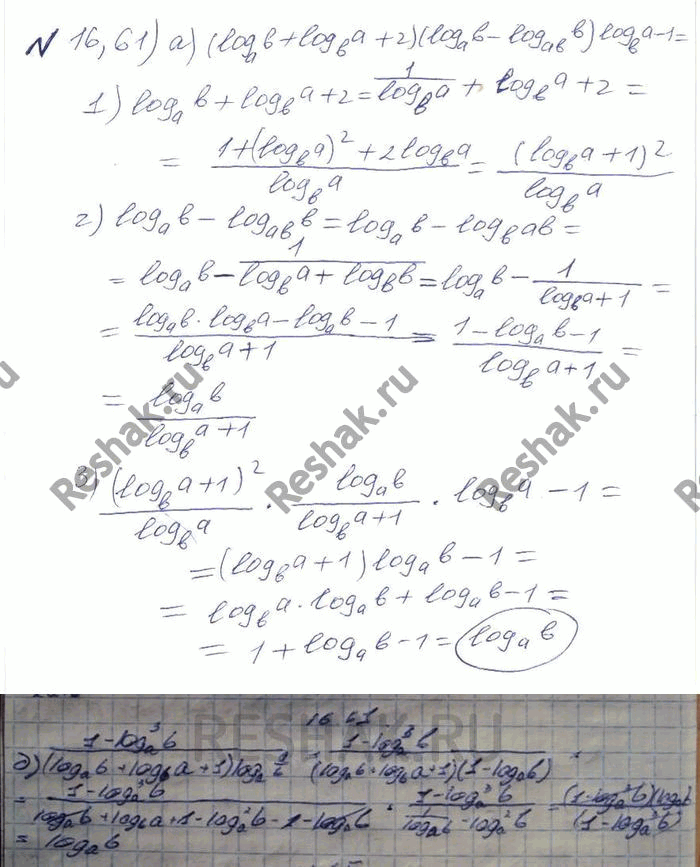 N 16,61) a) (log_a b + log_b a + 2)(log_a b - log_ab b) log_b a - 1 =
1) log_a b + log_b a + 2 = 1/log_b a + log_b a + 2 =
= (1 + (log_b a)^2 + 2 log_b a)/log_b a = (log_b a + 1)^2/log_b a
2) log_a b - log_ab b = log_a b - log_b ab =
= log_a b - 1/(log_b a + log_b b) = log_a b - 1/(log_b a + 1) =
= (log_a b · log_b a - log_a b - 1)/(log_b a + 1) = (1 - log_a b - 1)/(log_b a + 1) =
= log_a b/(log_b a + 1)
3) (log_b a + 1)^2/log_b a · log_a b/(log_b a + 1) · log_b a - 1 =
= (log_b a + 1) log_a b - 1 =
= log_b a · log_a b + log_a b - 1 =
= 1 + log_a b - 1 = log_a b
Reshak.ru
Reshak.ru
Reshak.ru
RESHAK.RU
16.61
(1 - log_a^3 b)/((log_a b + log_b a + 1) log_a a/b) (1 - log_a^3 b)/((log_a b + log_b a + 1)(1 - log_a b))
= log_a b